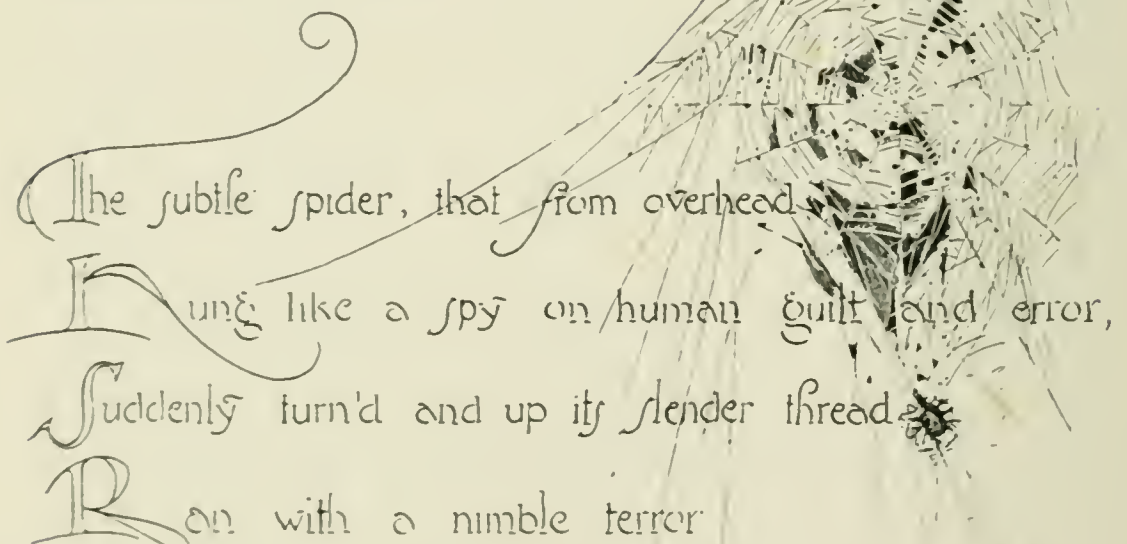 The subtle spider, that from overhead
Hung like a spy on human guilt and error,
Suddenly turn'd and up its slender thread
Ran with a nimble terror